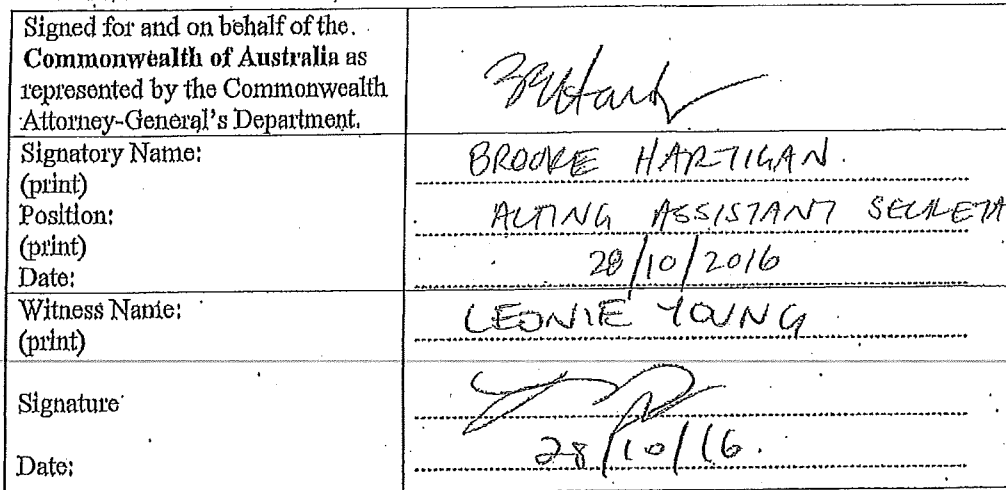 Signed for and on behalf of the.
Commonwealth of Australia as
represented by the Commonwealth
Attorney-General's Department.
Signatory Name:
(print)
BROOKE HARTIGAN.
Position:
(print)
ACTING ASSISTANT SECRETA
Date:
28/10/2016
Witness Name:
(print)
LEONIE YOUNG
Signature
Date:
28/10/16.